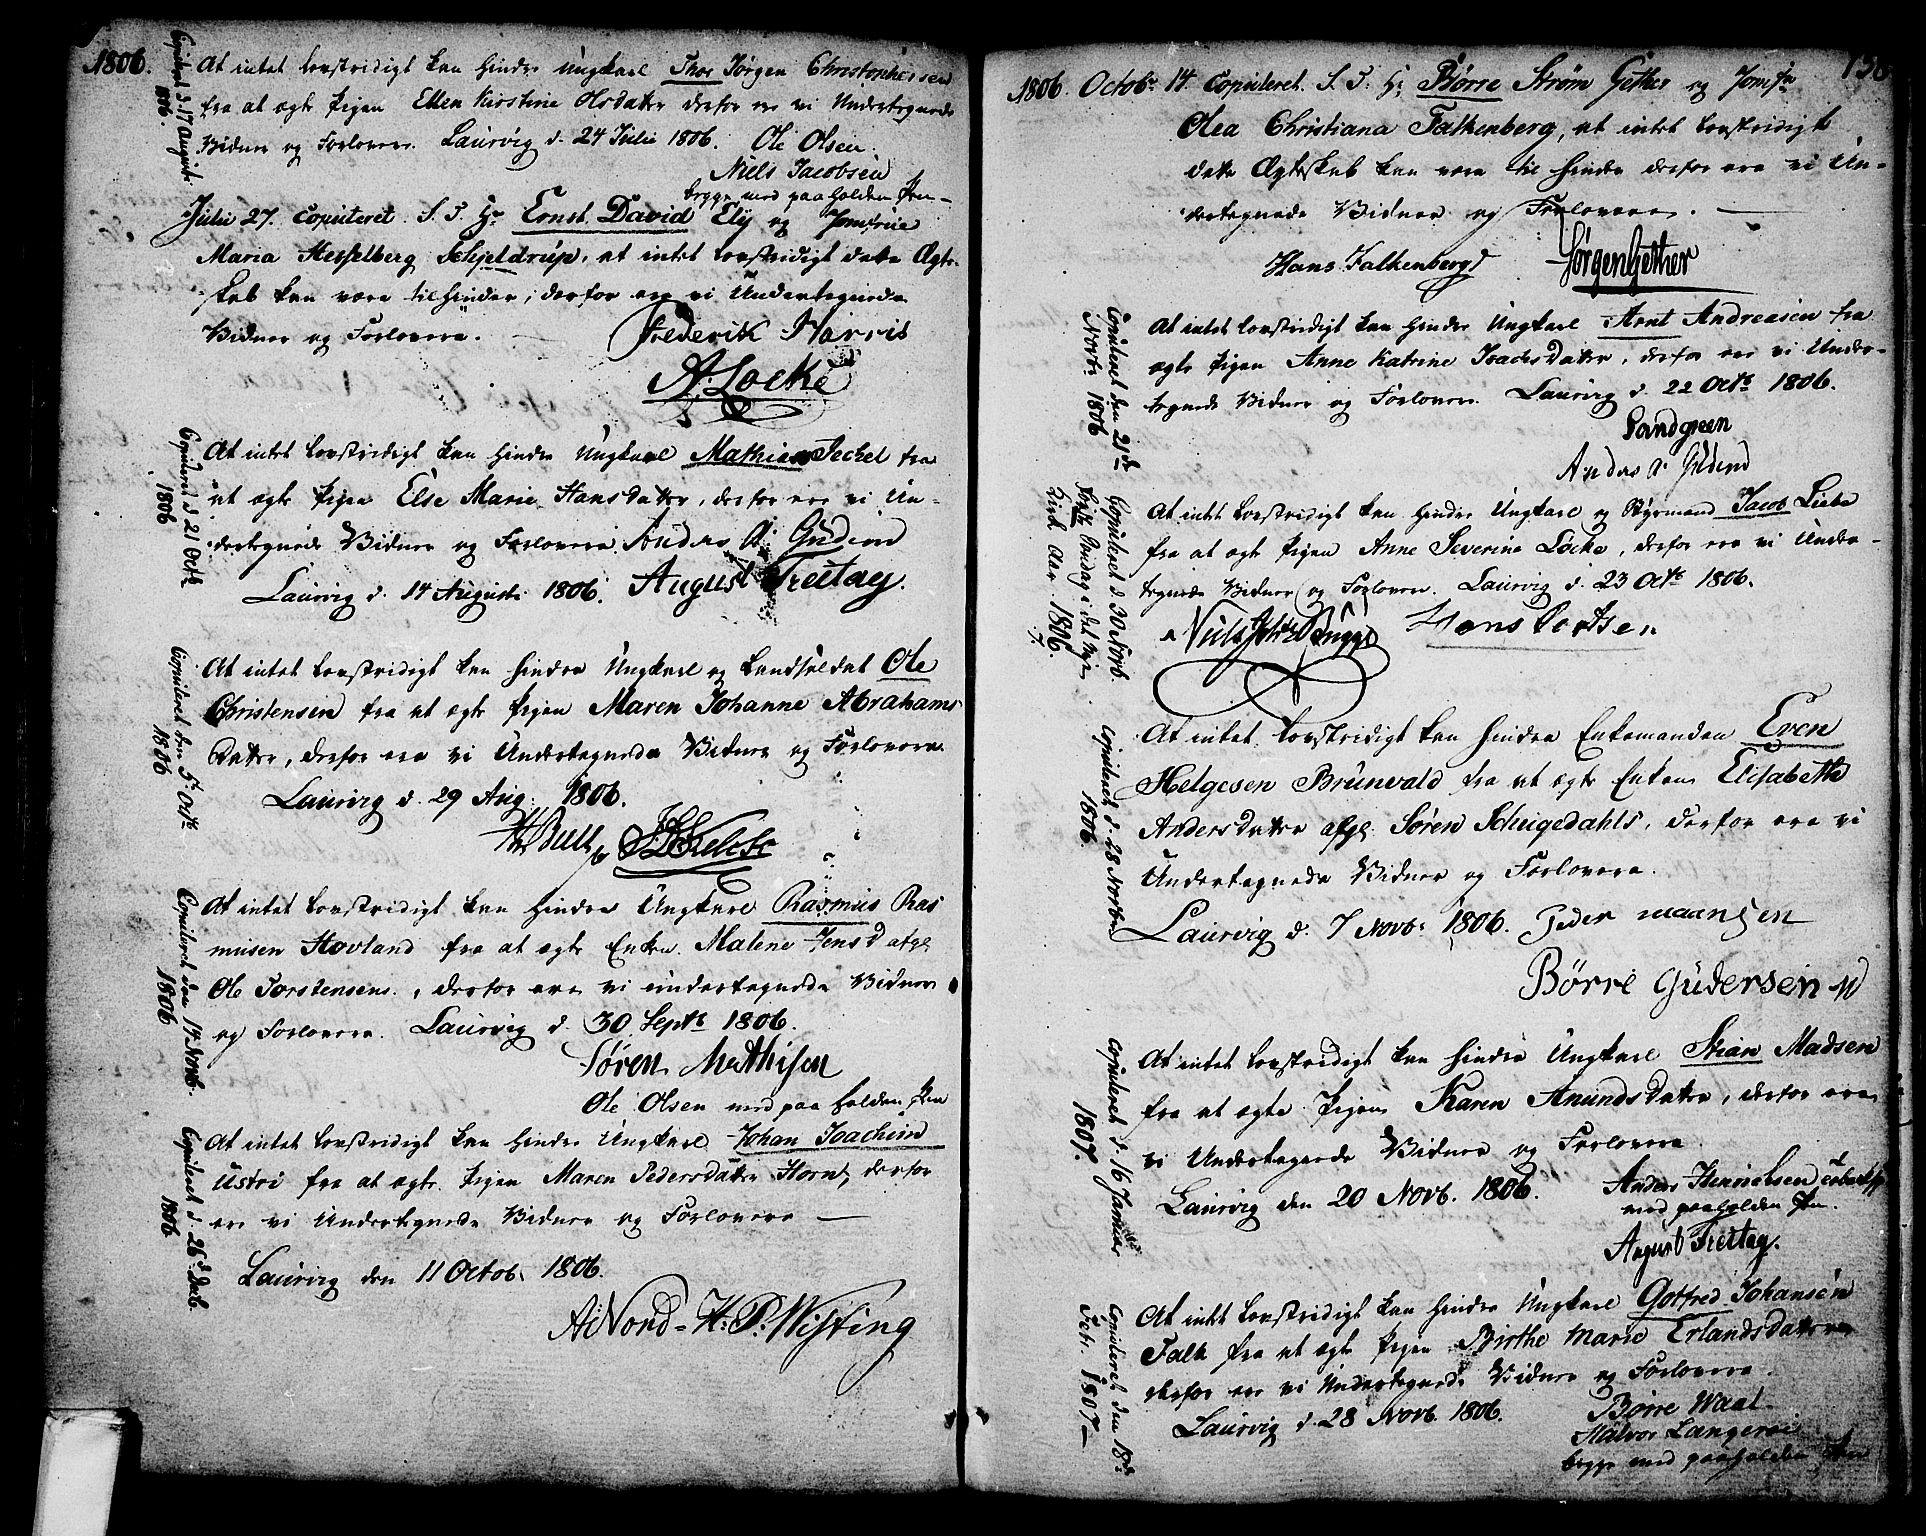 1806.
At intet lovstridigt kan hindre Ungkarl Thor Jørgen Christophersen
fra at ægte Pigen Ellen Kirstine Olsdatter derfor ere vi Undertegnede
Vidner og Forlovere. Laurvig d. 24 Julii 1806. Ole Olsen
Niels Jacobsen
begge med paaholden Pen
Copuleret d. 17 August
1806.
Julii 27. Copuleret S. T. Hr Ernst David Ely og Jomfrue
Maria Hesselberg Schjeldrup, at intet lovstridigt dette Ægte-
skab kan være til hinder, derfor ere vi Undertegnede
Vidner og Forlovere.
Frederik Harris
A. Locke
At intet lovstridigt kan hindre Ungkarl Mathias Jechel fra
at ægte Pigen Else Marie Hansdatter, derfor ere vi Un-
dertegnede Vidner og Forlovere. Anders A. Gudem
Laurvig d. 14 August 1806. August Freitag.
Copuleret d. 21 Octb
1806
At intet lovstridigt kan hindre Ungkarl og Landsoldat Ole
Christensen fra at ægte Pigen Maren Johanne Abrahams-
datter, derfor ere vi Undertegnede Vidner og Forlovere
Laurvig d. 29 Aug: 1806.
Copuleret den 5t Octb
1806
At intet lovstridigt kan hindre Ungkarl Rasmus Ras
musen Hovland fra at ægte Enken Malene Jensd afgl.
Ole Torstensens, derfor ere vi undertegnede Vidner
og Forlovere. Laurvig d. 30 Septb 1806.
Søren Mathisen
Ole Olsen med paaholden Pen
Copuleret den 14 Novb.
1806
At intet lovstridigt kan hindre Ungkarl Johan Joachim
Ustri fra at ægte Pigen Maren Pedersdatter Horn, derfor
ere vi Undertegnede Vidner og Forlovere
Laurvig den 11 Octob. 1806.
A: Nord - H. P. Wisting
Copuleret d. 26d Decb.
1806
1806. Octob. 14 Copuleret. S. T. Hr Børre Strøm Gether og Jomfr
Olea Christiana Falkenberg, at intet lovstridigt
dette Ægteskab kan være til hinder derfor ere vi Un-
dertegnede Vidner og Forlovere.
Hans Falkenberg Jørgen Gether
At intet lovstridigt kan hindre Ungkarl Arnt Andreasen fra
ægte Pigen Anne Katrine Isachsdatter, derfor ere vi Under-
tegnede Vidner og Forlovere. Laurvig d. 22 Octb 1806.
Sandgreen
Anders A Gudem
Copuleret den 21de
Novb 1806
At intet lovstridigt kan hindre Ungkarl og Styrmand Jacob Liebe
fra at ægte Pigen Anne Severine Locke, derfor ere vi Under-
tegnede Vidner og Forlovere. Laurvig d. 23 Octb 1806.
Copuleret d. 30 Novb.
første Søndag i det nye
Kirke Aar 1806.
At intet lovstridigt kan hindre Enkemanden Even
Helgesen Brunvald fra at ægte Enken Elisabeth
Andersdatter afgl. Søren Schigedahls, derfor ere vi
Undertegnede Vidner og Forlovere.
Laurvig d. 7 Novb. 1806. Peder Maansen
Børre Gudersen
Copuleret d. 28 Novbr
1806.
At intet lovstridigt kan hindre Ungkarl Stian Madsen
fra at ægte Pigen Karen Anundsdatter, derfor ere
vi Undertegnede Vidner og Forlovere
Laurvig den 20 Novb. 1806. Anders Henrichsen
med paaholden Pen.
August Freitag.
Copuleret d. 16 Januar
1807.
At intet lovstridigt kan hindre Ungkarl Gotfred Johansen
Falk fra at ægte Pigen Birthe Marie Erlandsdatter
derfor ere vi Undertegnede Vidner og Forlovere
Laurvig d. 28 Novb. 1806. Børre Waal
Halvor Langerøi
begge med paaholden Pen
Copuleret den 18de
Febr. 1807